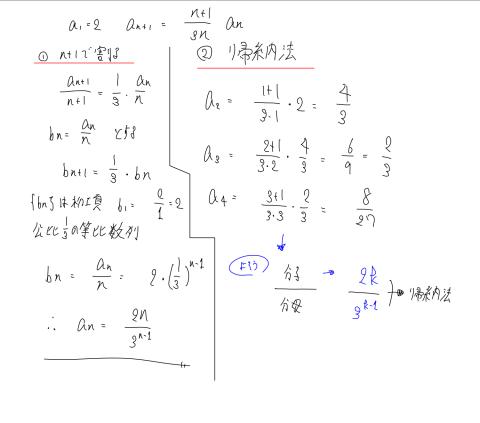 a₁=2 aₙ₊₁ = n+1/3n aₙ
① n+1で割る
aₙ₊₁/n+1 = 1/3 · aₙ/n
bₙ = aₙ/n とする
bₙ₊₁ = 1/3 · bₙ
{bₙ}は初項 b₁ = 2/1 = 2
公比1/3の等比数列
bₙ = aₙ/n = 2·(1/3)ⁿ⁻¹
∴ aₙ = 2n/3ⁿ⁻¹
② 帰納法
a₂ = 1+1/3·1 · 2 = 4/3
a₃ = 2+1/3·2 · 4/3 = 6/9 = 2/3
a₄ = 3+1/3·3 · 2/3 = 8/27
予想 分子/分母 → 2k/3ᵏ⁻¹ → 帰納法